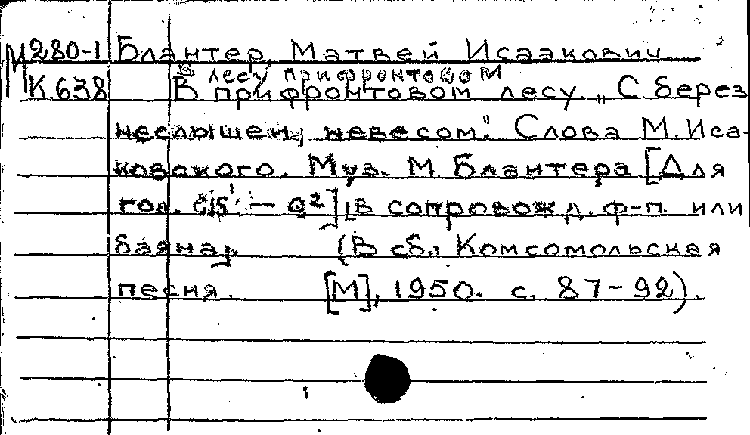 М280-1 Блантер, Матвей Исаакович
В лесу прифронтовом
К638 В прифронтовом лесу. „С берез
неслышен, невесом". Слова М. Иса-
ковского. Муз. М Блантера [Для
гол. – ] [в сопровожд. ф-п. или
баяна] (В сб.: Комсомольская
песня. [М], 1950. с. 87-92).